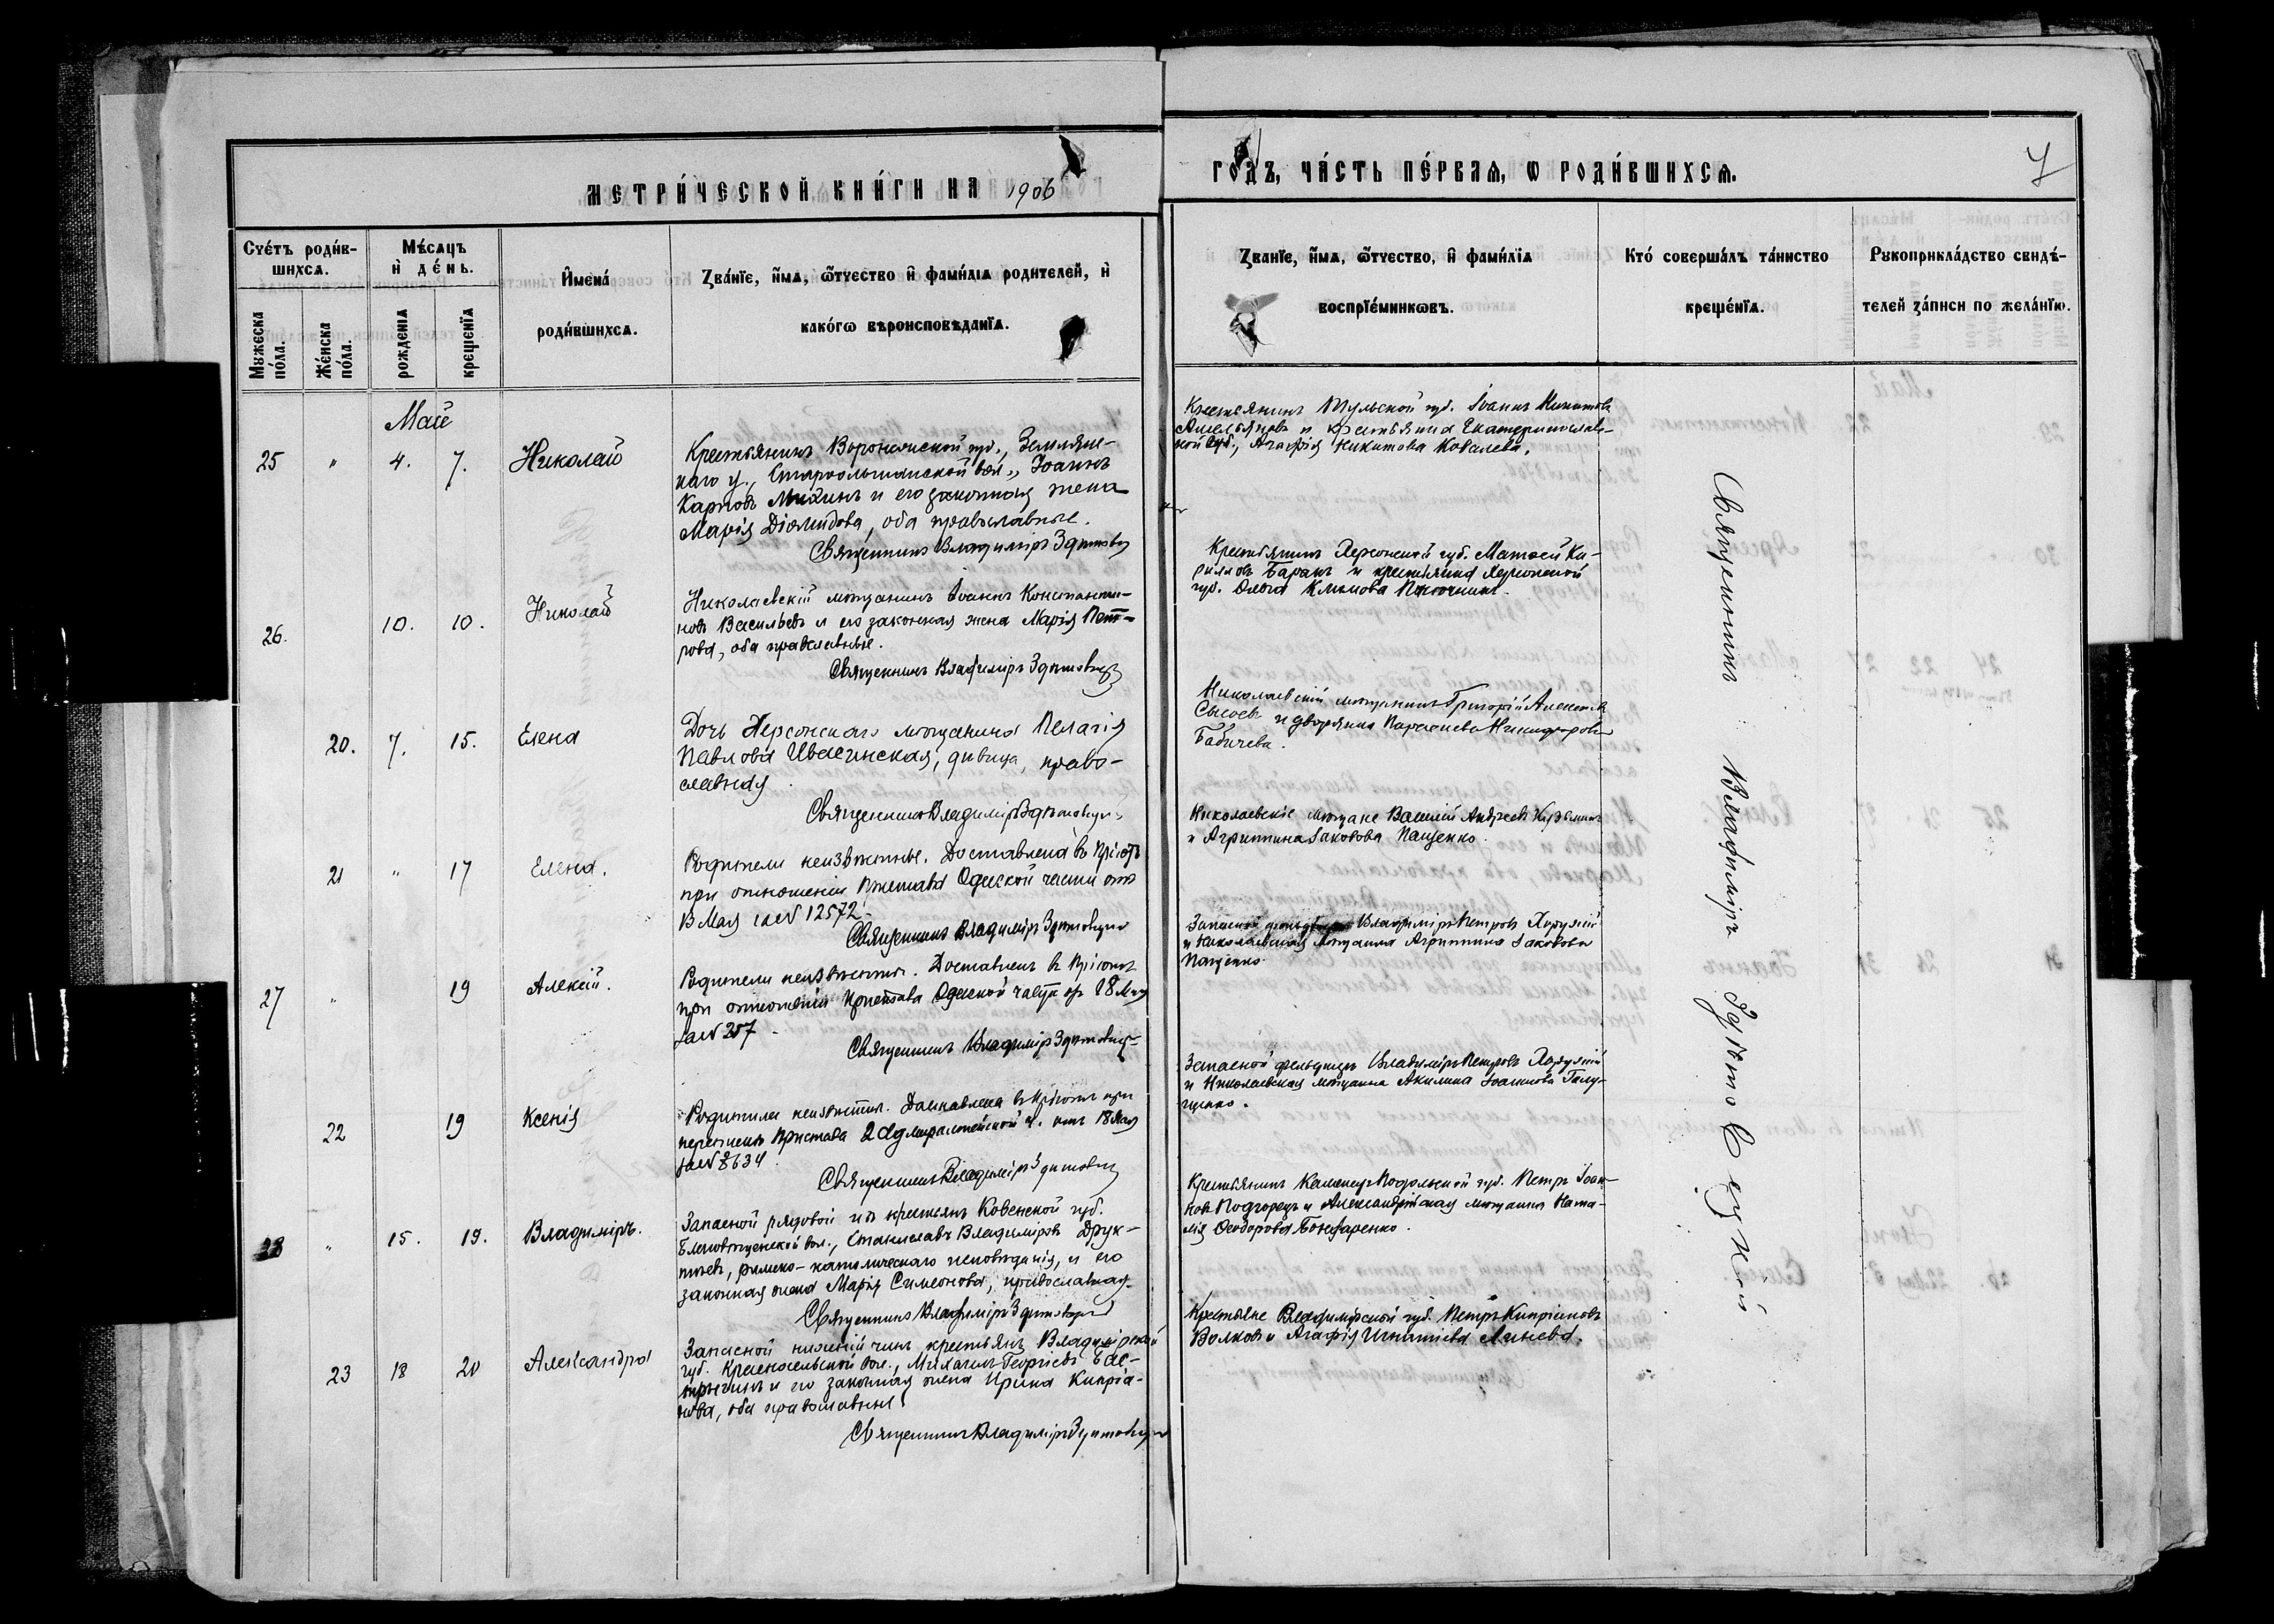 МЕТРИ́ЧЕСКОЙ КНИ́ГИ НА 1906
ГО́ДЪ, ЧА́СТЬ ПЕ́РВАЯ, Ѡ РОДИ́ВШИХСЯ.
7
Сче́тъ роди́в-
шихсѧ.
Мꙋжеска
по́ла.
Же́нска
по́ла.
Мѣ́сѧцъ
и҆ де́нь.
рожденїѧ
крещенїѧ
И҆мена́
роди́вшихсѧ.
Зва́нїе, и҆́мѧ, ѻ҆́тчество и҆ фами́лїѧ родителей, и҆
како́гѡ вѣроисповѣданїѧ.
Зва́нїе, и҆́мѧ, ѻ҆́тчество, и҆ фами́лїѧ
воспрїе́мникѡвъ.
Кто́ соверша́лъ та́инство
креще́нїѧ.
Рꙋкоприкла́дство свидѣ́-
телей за́писи по жела́нїю.
Май
25 " 4. 7. Николай
Крестьянинъ Воронежской губ., Землян-
наго у., Старольшанской вол., Іоаннъ
Карповъ и его законная жена
Марія Діомидова, оба православные.
Священникъ Владиміръ Здѣтовецкій
Крестьянинъ Тульской губ. Іоаннъ Никитовъ
Амельянов и крестьянка Екатеринослав-
ской губ., Агафія Никитова Ковалева.
26. 10. 10. Николай
Николаевскій мѣщанинъ Іоаннъ Константи-
новъ Васильевъ и его законная жена Марія Пет-
рова, оба православные.
Священникъ Владиміръ Здѣтовецкій
Крестьянинъ Херсонской губ. Матѳей Ки-
рилловъ Баранъ и крестьянка Херсонской
губ. Ольга Климова
20. 7. 15. Елена
Дочь Херсонскаго мѣщанина Пелагія
Павлова дѣвица, право-
славная.
Священникъ Владиміръ Здѣтовецкій
Николаевскій мѣщанинъ Григорій Алексѣевъ
Сысоевъ и дворянка Параскева Никифорова
Бабичева.
21 " 17 Елена.
Родители неизвѣстны. Доставлена въ Пріютъ
при отношеніи Пристава Одесской части отъ
Мая за N 12572.
Священникъ Владиміръ Здѣтовецкій
Николаевскіе мѣщане Василій Андреевъ
и Агриппина Іаковова Пащенко.
27 " 19 Алексій.
Родители неизвѣстны. Доставленъ въ Пріютъ
при отношеніи Пристава Одесской части отъ 18 Мая
за N 257.
Священникъ Владиміръ Здѣтовецкій
Запасной фельдшеръ Владиміръ Петровъ
и Николаевская мѣщанка Агриппина Іаковова
Пащенко.
22 19 Ксенія
Родители неизвѣстны. Доставлена въ Пріютъ при
Пристава 2 Адмиралтейской ч. отъ 18 Мая
за N 8634.
Священникъ Владиміръ Здѣтовецкій
Запасной фельдшеръ Владиміръ Петровъ
и Николаевская мѣщанка Акилина Іоаннова Галу-
щенко.
28 " 15. 19. Владиміръ.
Запасной рядовой изъ крестьянъ Ковенской губ.
вол., Станиславъ Владиміровъ Друк-
римско-католическаго исповѣданія, и его
законная жена Марія Симеонова, православная.
Священникъ Владиміръ Здѣтовецкій
Крестьянинъ Каменецъ-Подольской губ. Петръ Іоан-
новъ Подгорецъ и Александрійская мѣщанка Ната-
лія Ѳеодорова Бондаренко.
23 18 20 Александра
Запасной нижній чинъ крестьянъ Владимірской
губ. Красносельской вол., Михаилъ Георгіевъ
и его законная жена Ирина Кипріа-
нова, оба православные.
Священникъ Владиміръ Здѣтовецкій
Крестьяне Владимірской губ. Петръ Кипріановъ
Волковъ и Агафія Игнатіева Линева.
Священникъ Владиміръ Здѣтовецкій